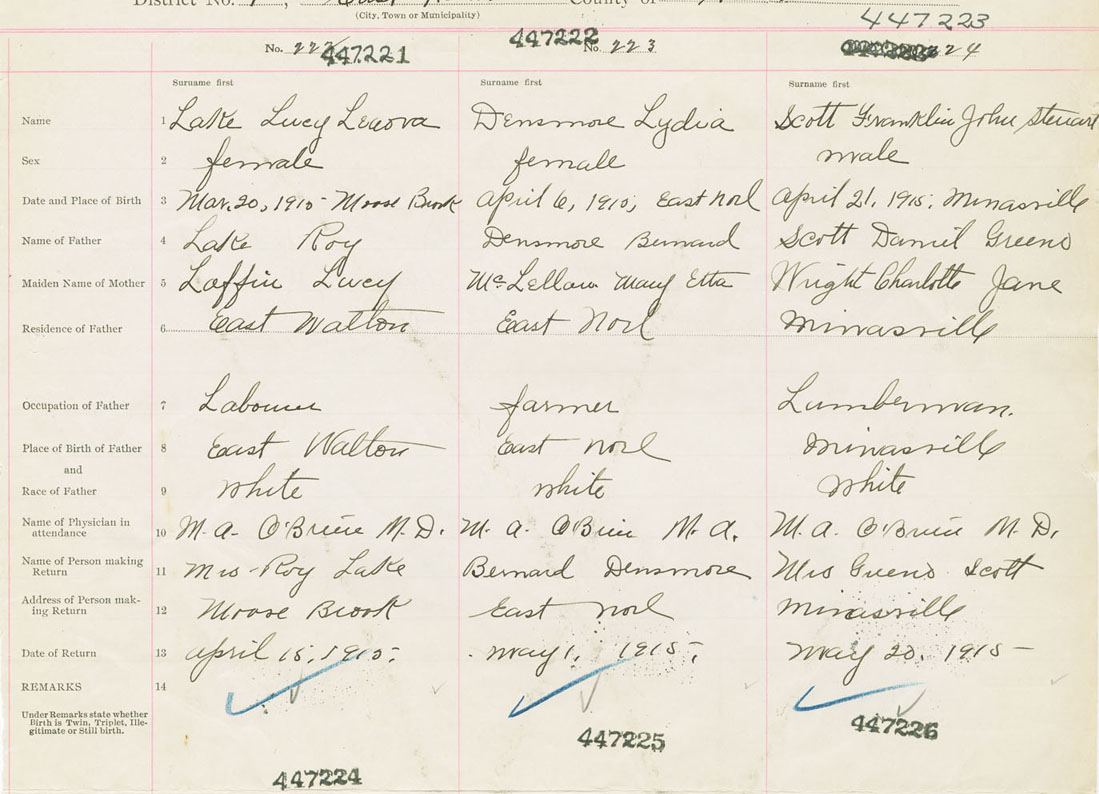 District No.
County of
(City, Town or Municipality)
447223
No. 222 447221
447222 No. 223
224
Surname first Surname first Surname first
Name 1 Lake Lucy Lenova Densmore Lydia Scott Franklin John Steuart
Sex 2 female female male
Date and Place of Birth 3 Mar. 20, 1915 - Moose Brook April 6, 1915, East Noel April 21, 1915, Minasville
Name of Father 4 Lake Roy Densmore Bernard Scott Daniel Greeno
Maiden Name of Mother 5 Laffin Lucy McLellan Mary Etta Wright Charlotte Jane
Residence of Father 6 East Walton East Noel Minasville
Occupation of Father 7 Labourer farmer Lumberman.
Place of Birth of Father 8 East Walton East Noel Minasville
and
Race of Father 9 white white white
Name of Physician in
attendance 10 M. A. O'Brien M. D. M. A. O'Brien M. d. M. A. O'Brien M. D.
Name of Person making
Return 11 Mrs Roy Lake Bernard Densmore Mrs Greeno Scott
Address of Person mak-
ing Return 12 Moose Brook East Noel Minasville
Date of Return 13 april 15, 1915. May 1, 1915. May 20, 1915 -
REMARKS 14
Under Remarks state whether
Birth is Twin, Triplet, Ille-
gitimate or Still birth.
447226
447225
447224